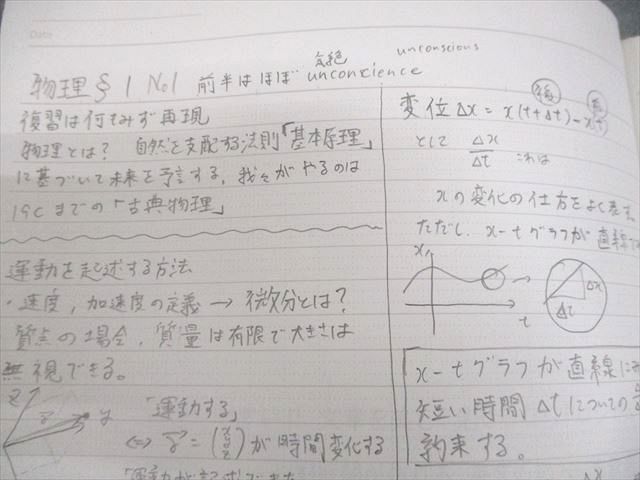 Date
物理 § 1 No1 前半はほぼ 気絶 unconscious
unconscience
復習は何もみず再現
物理とは? 自然を支配する法則「基本原理」
に基づいて未来を予言する。我々がやるのは
19Cまでの「古典物理」
運動を記述する方法
・速度, 加速度の定義 → 微分とは?
質点の場合, 質量は有限で大きさは
無視できる。
z
y
「運動する」
⇔ r⃗ = (x y z) が時間変化する
後 前
変位 Δx = x(t+Δt) - x(t)
として Δx/Δt これは
xの変化の仕方をよく表す
ただし, x-tグラフが直線
x
t
→
Δx
Δt
x-tグラフが直線に
短い時間 Δtについての
約束する。